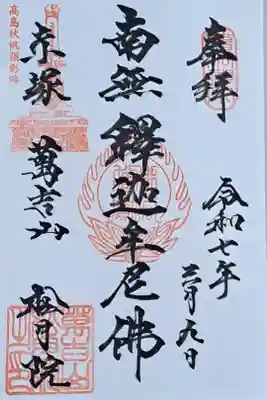 奉拝
令和七年
三月九日
南無釋迦牟尼佛
赤塚
萬吉山
松月院
高島秋帆顕彰碑